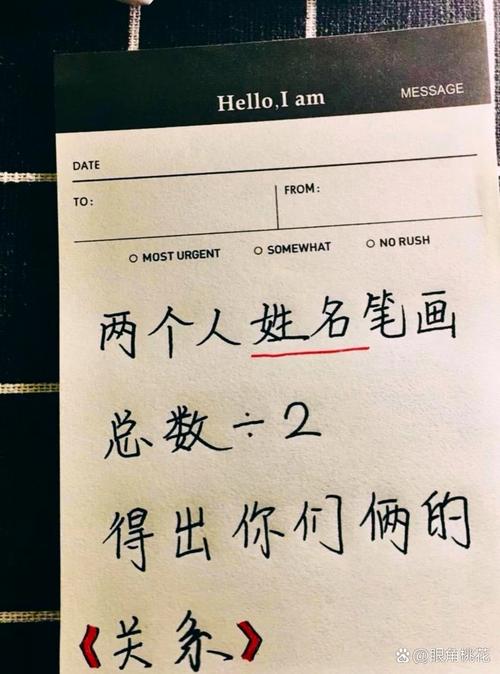 Hello,I am
MESSAGE
DATE
TO:
FROM:
MOST URGENT
SOMEWHAT
NO RUSH
两个人姓名笔画
总数÷2
得出你们俩的
《关系》
Bai百科@眼角桃花